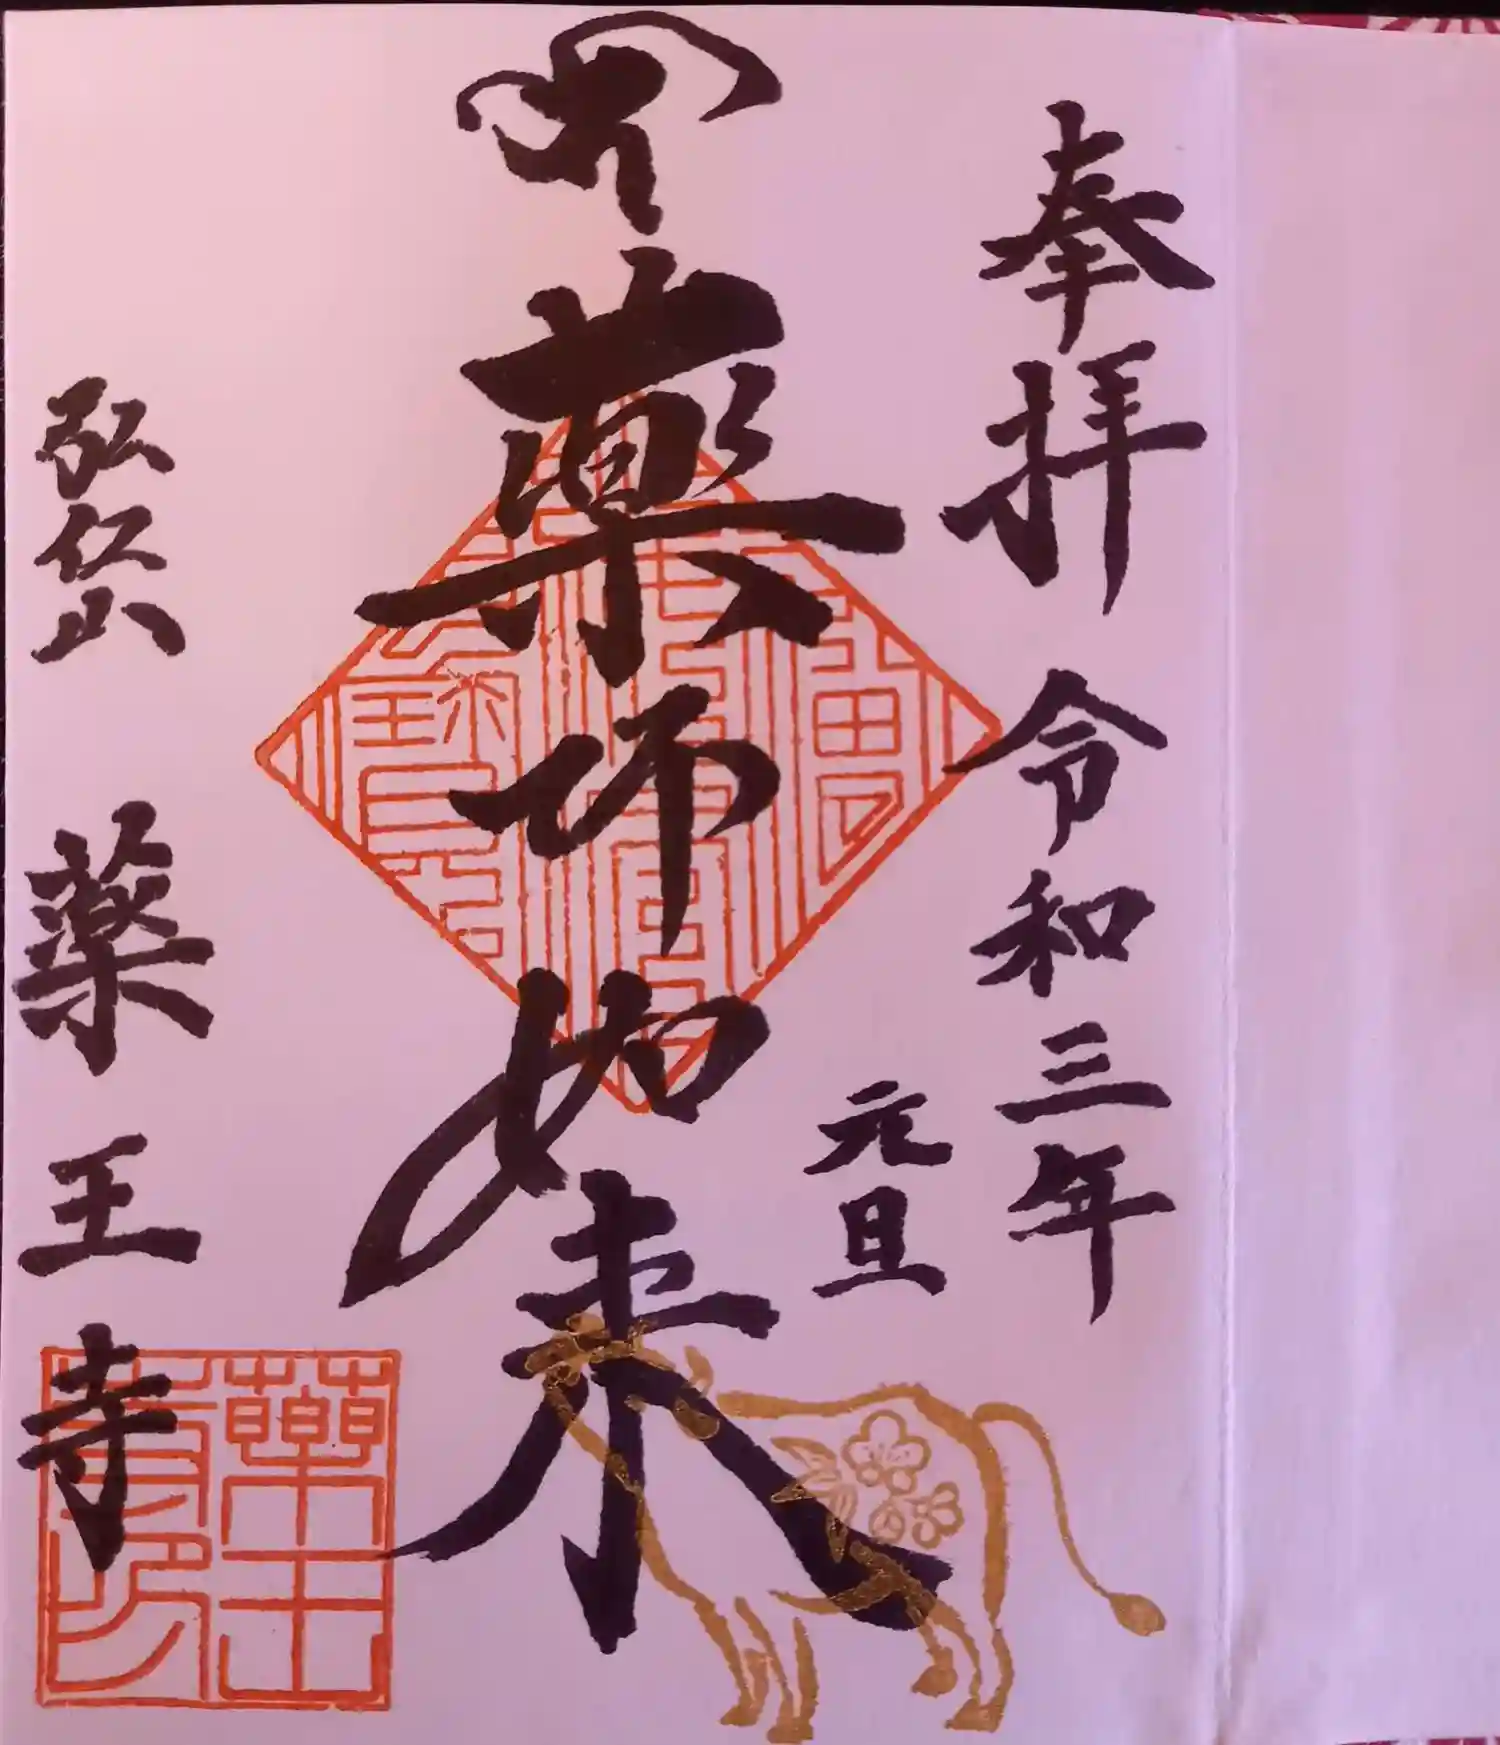 奉拝 令和三年
元旦
薬师如来
弘仁山 薬王寺
藥王
寺印